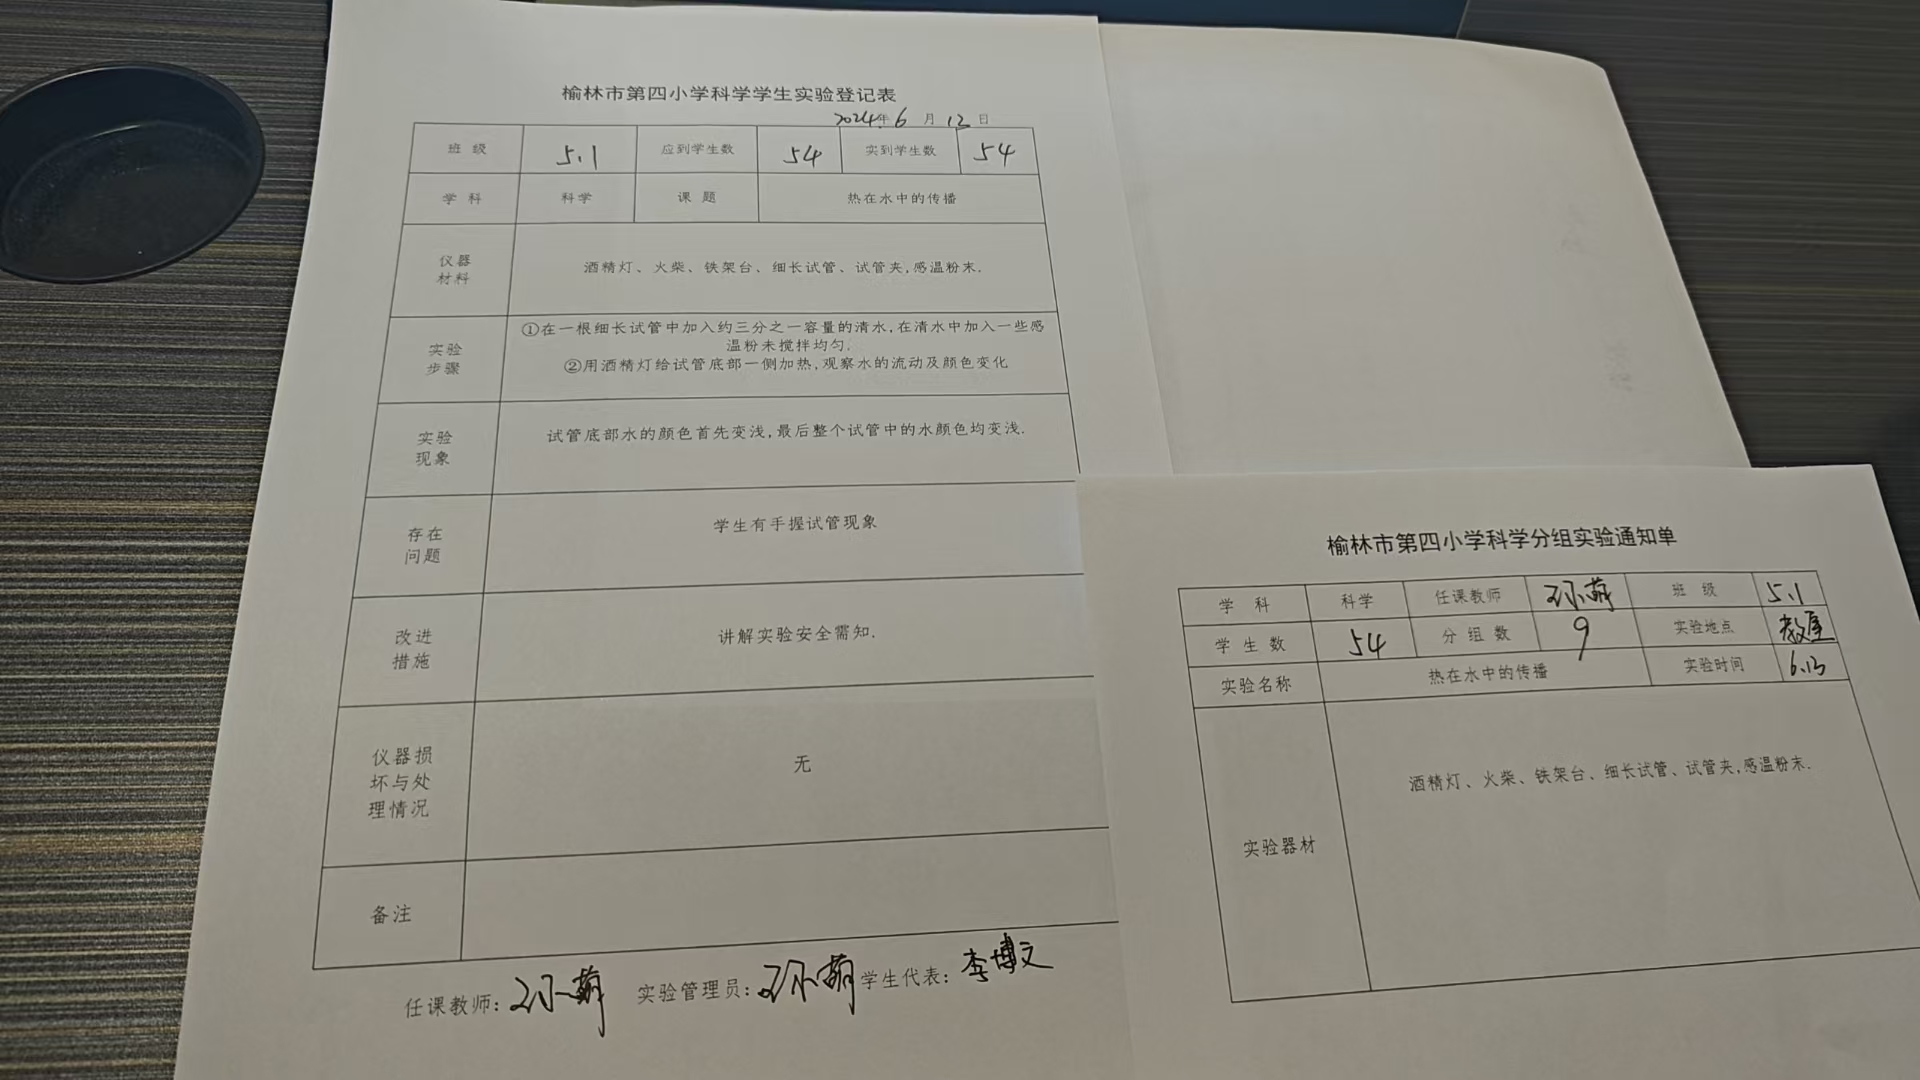 榆林市第四小学科学学生实验登记表
2024年 6 月 12 日
班 级 5.1 应到学生数 54 实到学生数 54
学 科 科学 课 题 热在水中的传播
仪器
材料
酒精灯、火柴、铁架台、细长试管、试管夹,感温粉末.
实验
步骤
①在一根细长试管中加入约三分之一容量的清水,在清水中加入一些感
温粉末搅拌均匀.
②用酒精灯给试管底部一侧加热,观察水的流动及颜色变化
实验
现象
试管底部水的颜色首先变浅,最后整个试管中的水颜色均变浅.
存在
问题
学生有手握试管现象
改进
措施
讲解实验安全需知.
仪器损
坏与处
理情况
无
备注
任课教师: 孙萌 实验管理员: 孙萌 学生代表: 李博文
榆林市第四小学科学分组实验通知单
学 科 科学 任课教师 孙萌 班 级 5.1
学 生 数 54 分 组 数 9 实验地点 教室
实验名称 热在水中的传播 实验时间 6.13
实验器材
酒精灯、火柴、铁架台、细长试管、试管夹,感温粉末.